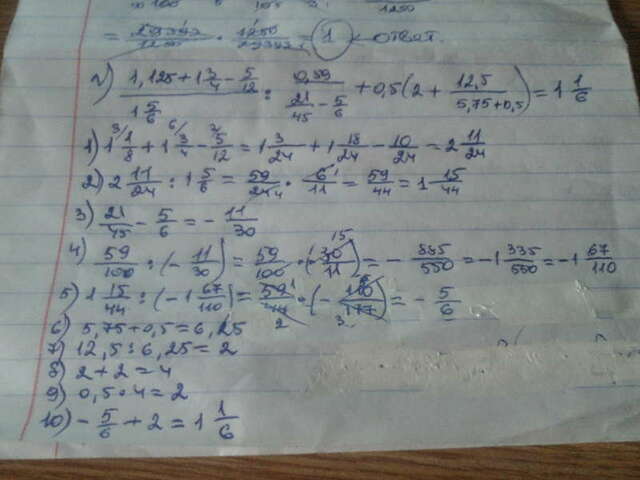 = 29392/1250 · 1250/29392 = 1 ответ.
2) (1,125 + 1 3/4 − 5/12)/(1 5/6) : 0,59/(21/45 − 5/6) + 0,5(2 + 12,5/(5,75+0,5)) = 1 1/6
1) 1 1/8 + 1 3/4 − 5/12 = 1 3/24 + 1 18/24 − 10/24 = 2 11/24
2) 2 11/24 : 1 5/6 = 59/24 · 6/11 = 59/44 = 1 15/44
3) 21/45 − 5/6 = − 11/30
4) 59/100 : (− 11/30) = 59/100 · (− 30/11) = − 885/550 = −1 335/550 = −1 67/110
5) 1 15/44 : (−1 67/110) = 59/44 · (− 110/177) = − 5/6
6) 5,75 + 0,5 = 6,25
7) 12,5 : 6,25 = 2
8) 2 + 2 = 4
9) 0,5 · 4 = 2
10) − 5/6 + 2 = 1 1/6